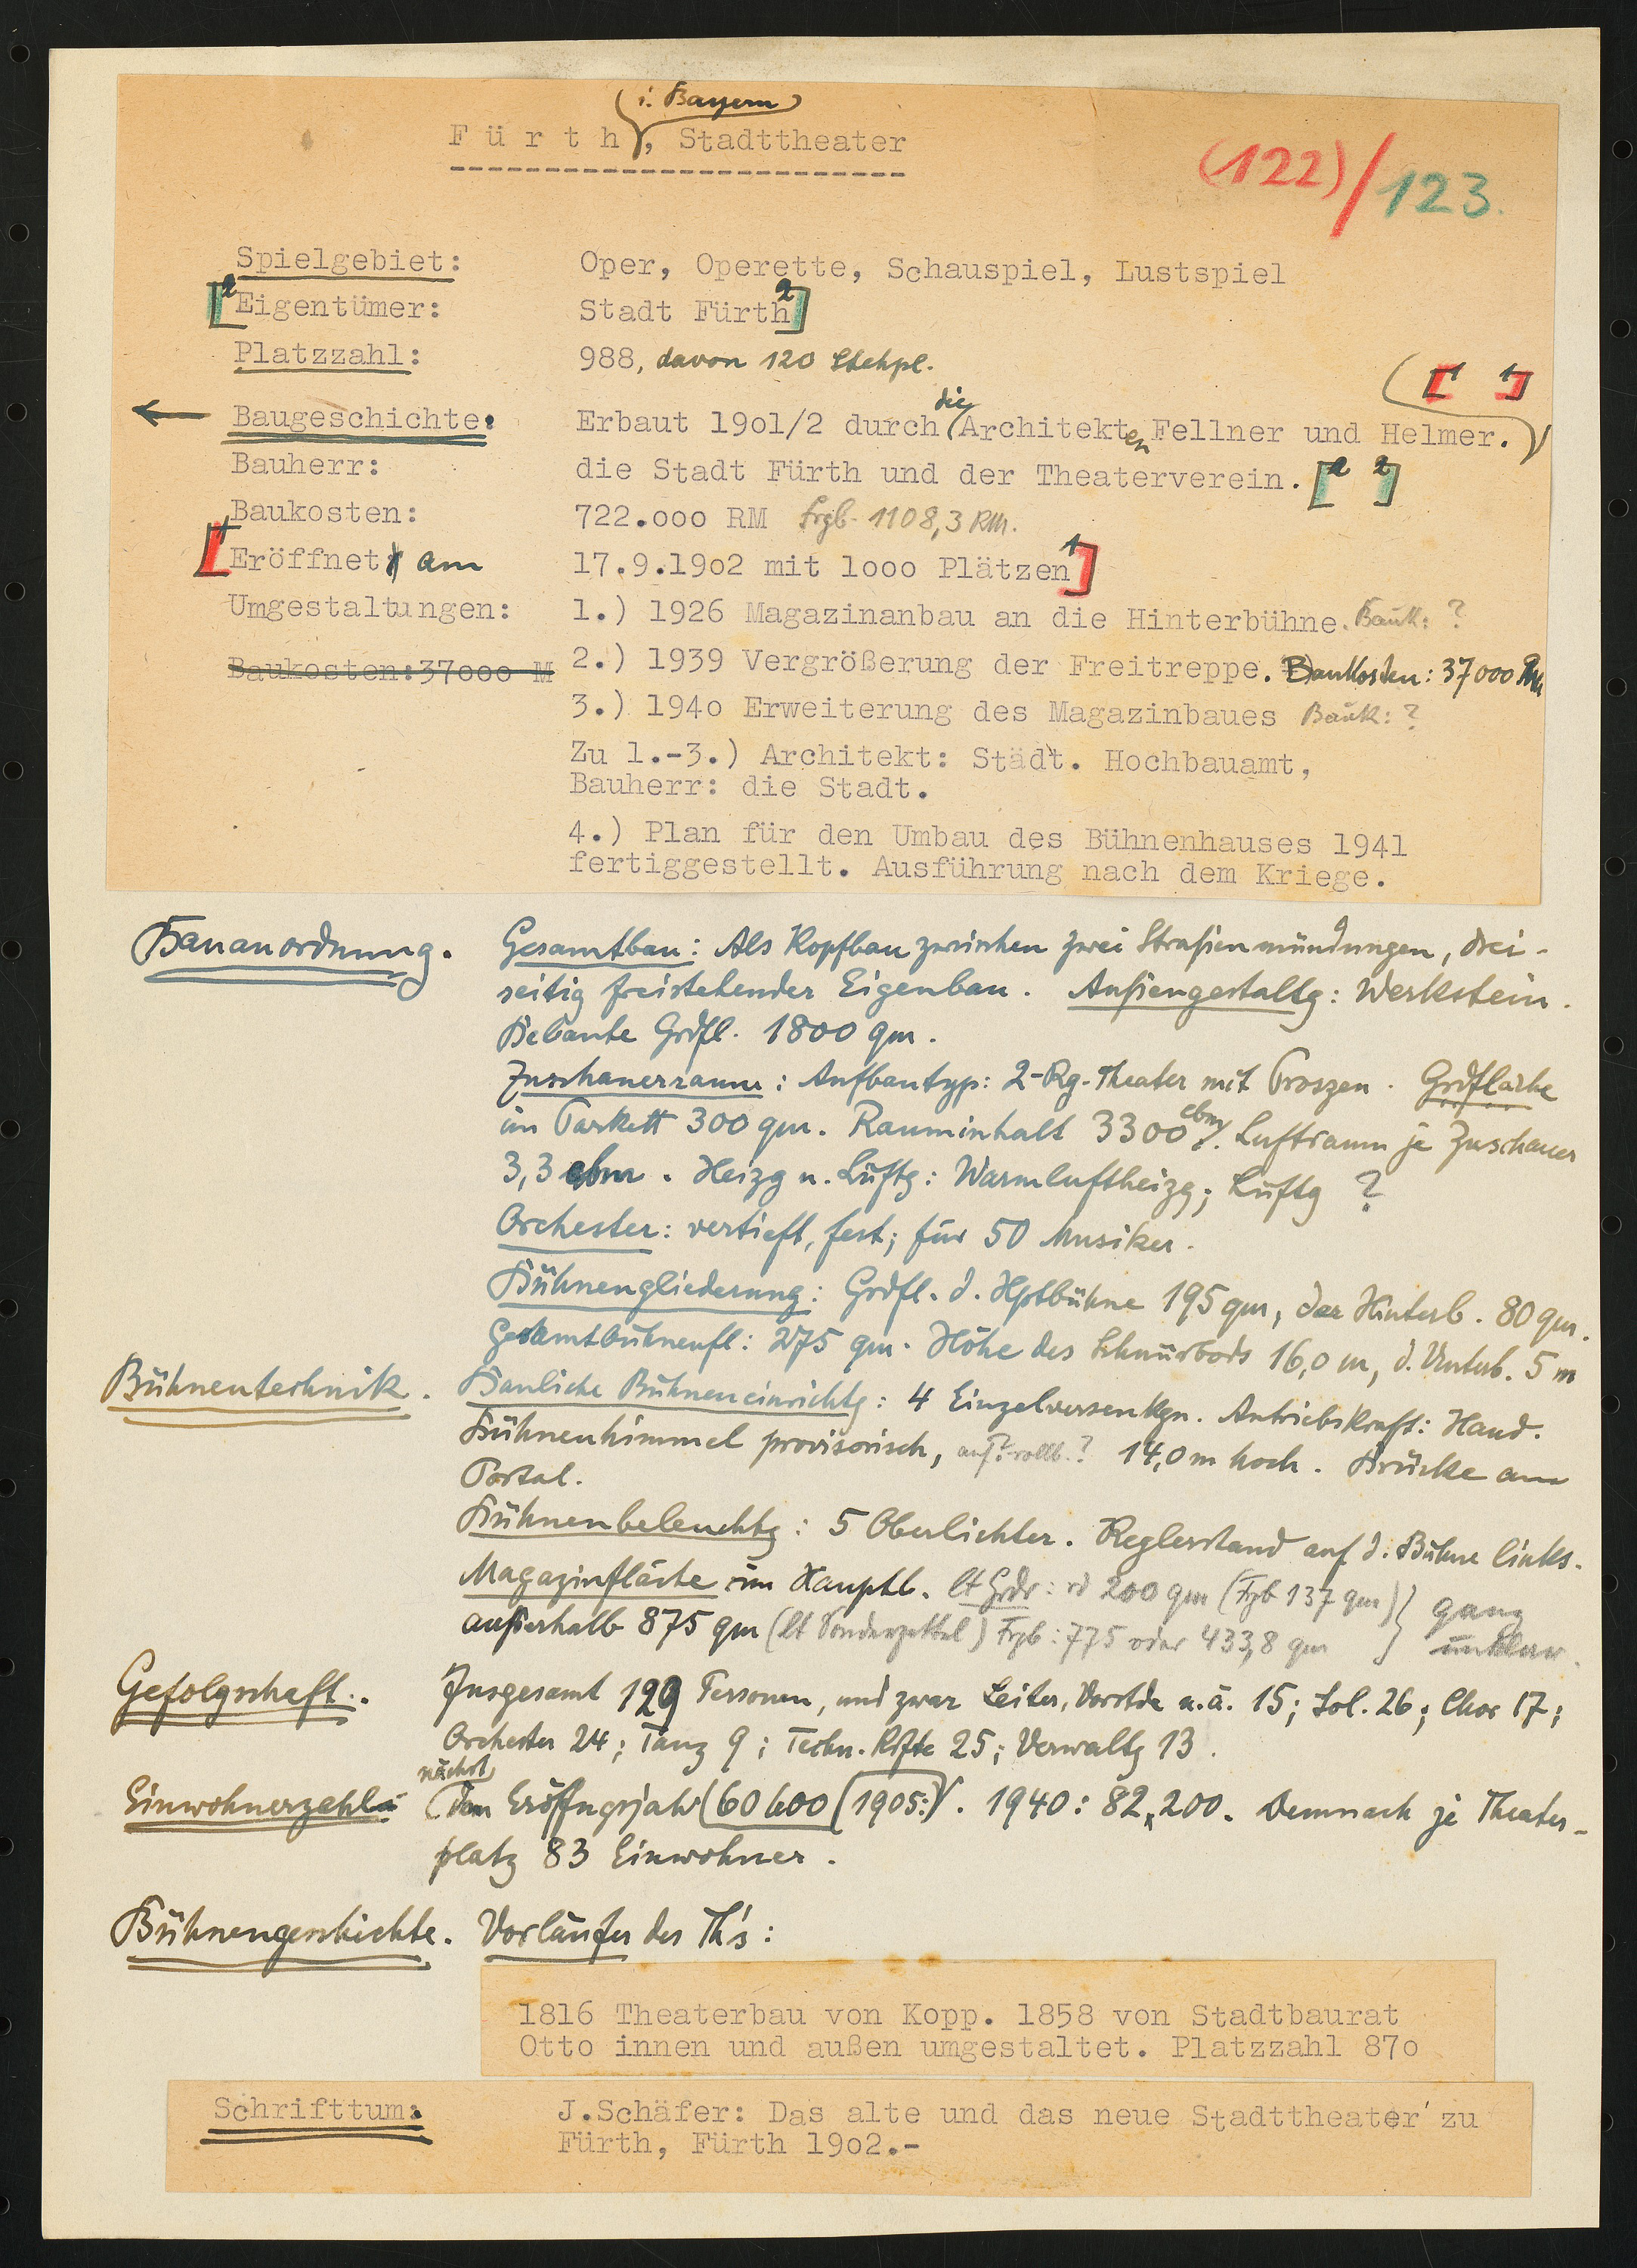 (i. Bayern)
Fürth, Stadttheater
(122)/123.
Spielgebiet: Oper, Operette, Schauspiel, Lustspiel
[2 Eigentümer: Stadt Fürth 2]
Platzzahl: 988, davon 120 Stehpl.
[1 1]
die
Baugeschichte: Erbaut 19o1/2 durch Architekten Fellner und Helmer.
Bauherr: die Stadt Fürth und der Theaterverein. [2 2]
Baukosten: 722.ooo RM Frgb. 1108,3 RM.
[1 Eröffnet am 17.9.19o2 mit 1ooo Plätzen 1]
Umgestaltungen: 1.) 1926 Magazinanbau an die Hinterbühne. Bauk: ?
Baukosten:37ooo M 2.) 1939 Vergrößerung der Freitreppe. Baukosten: 37000 RM
3.) 194o Erweiterung des Magazinbaues Bauk: ?
Zu 1.-3.) Architekt: Städt. Hochbauamt,
Bauherr: die Stadt.
4.) Plan für den Umbau des Bühnenhauses 1941
fertiggestellt. Ausführung nach dem Kriege.
Bauanordnung. Gesamtbau: Als Kopfbau zwischen zwei Straßenmündungen, drei-
seitig freistehender Eigenbau. Außengestaltg: Werkstein.
Bebaute Grdfl. 1800 qm.
Zuschauerraum: Aufbautyp: 2-Rg-Theater mit Proszen. Grdfläche
im Parkett 300 qm. Rauminhalt 3300 cbm. Luftraum je Zuschauer
3,3 cbm. Heizg u. Lüftg: Warmluftheizg; Lüftg ?
Orchester: vertieft, fest; für 50 Musiker.
Bühnengliederung: Grdfl. d. Hptbühne 195 qm, der Hinterb. 80 qm.
Gesamtbühnenfl: 275 qm. Höhe des Schnürbods 16,0 m, d. Unterb. 5 m
Bühnentechnik. Bauliche Bühneneinrichtg: 4 Einzelversenkgn. Antriebskraft: Hand.
Bühnenhimmel provisorisch, auf?rollb.? 14,0 m hoch. Brücke am
Portal.
Bühnenbeleuchtg: 5 Oberlichter. Reglerstand auf d. Bühne links.
Magazinfläche im Hauptb. lt Grdr: rd 200 qm (Frgb 137 qm) } ganz
außerhalb 875 qm (lt Sonderzettel) Frgb: 775 oder 433,8 qm } unklar.
Gefolgschaft. Insgesamt 129 Personen, und zwar Leiter, Vorstde u.ä. 15; Sol. 26; Chor 17;
Orchester 24; Tanz 9; Techn. Kräfte 25; Verwaltg 13.
nächst
Einwohnerzahl dem Eröffngsjahr (60600 (1905:). 1940: 82,200. Demnach je Theater-
platz 83 Einwohner.
Bühnengeschichte. Vorläufer des Th's:
1816 Theaterbau von Kopp. 1858 von Stadtbaurat
Otto innen und außen umgestaltet. Platzzahl 87o
Schrifttum: J.Schäfer: Das alte und das neue Stadttheater zu
Fürth, Fürth 19o2.-